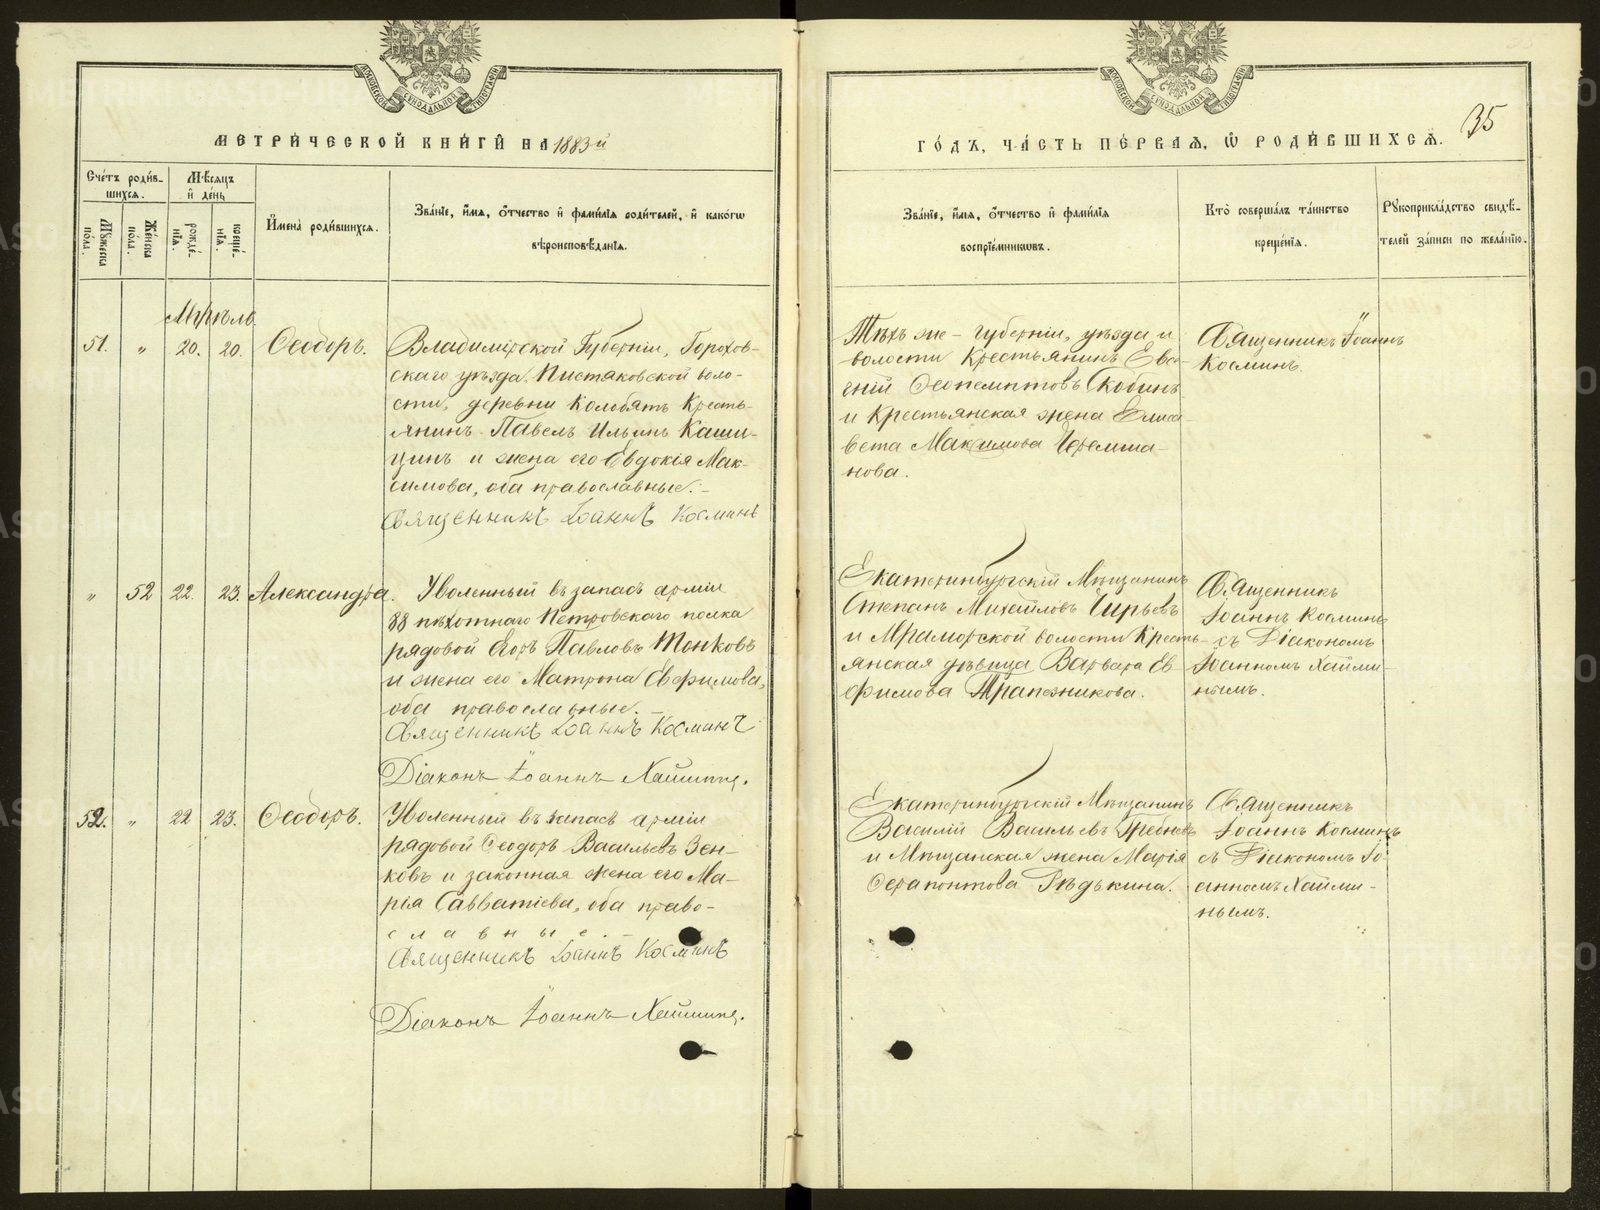 МЕТРИЧЕСКОЙ КНИГИ НА 1883й
ГОДЪ, ЧАСТЬ ПЕРВАЯ, Ѿ РОДИВШИХСЯ.
35
Счетъ родив-
шихся.
Мѣсяцъ
и день
Имена родившихся.
Званіе, имя, отчество и фамилія родителей, и какогѡ
вѣроисповѣданія.
Мужеска
пола.
Женска
пола.
рожде-
нія.
креще-
нія.
Званіе, имя, отчество и фамилія
воспріемниковъ.
Кто совершалъ таинство
крещенія.
Рукоприкладство свидѣ-
телей записи по желанію.
Апрѣль
51. " 20. 20. Ѳеодоръ.
Владимірской Губерніи, Горохов-
скаго уѣзда, Пистяковской воло-
сти, деревни Колобятъ Кресть-
янинъ Павелъ Ильинъ Каши-
цинъ и жена его Евдокія Мак-
симова, оба православные.
Священникъ Іоаннъ Косминъ
Тѣхъ же губерніи, уѣзда и
волости Крестьянинъ Евге-
ній Ѳеопемптовъ Скобинъ
и Крестьянская жена Елиса-
вета Максимова Черемша-
нова.
Священникъ Іоаннъ
Косминъ.
" 52 22. 23. Александра.
Уволенный въ запасъ арміи
88 пѣхотнаго Петровскаго полка
рядовой Егоръ Павловъ Тонковъ
и жена его Матрона Евфимова,
оба православные.
Священникъ Іоаннъ Косминъ
Діаконъ Іоаннъ Хайминъ.
Екатеринбургскій Мѣщанинъ
Степанъ Михайловъ Чирьевъ
и Мраморской волости Кресть-
янская дѣвица Варвара Ев-
фимова Трапезникова.
Священникъ
Іоаннъ Косминъ
съ Діакономъ
Іоанномъ Хайми-
нымъ.
52. " 22 23. Ѳеодоръ.
Уволенный въ запасъ арміи
рядовой Ѳеодоръ Васильевъ Зен-
ковъ и законная жена его Ма-
рія Савватіева, оба право-
славные.
Священникъ Іоаннъ Косминъ
Діаконъ Іоаннъ Хайминъ.
Екатеринбургскій Мѣщанинъ
Василій Васильевъ Гребневъ
и Мѣщанская жена Марія
Ѳерапонтова Рѣдькина.
Священникъ
Іоаннъ Косминъ
съ Діакономъ Іо-
анномъ Хайми-
нымъ.